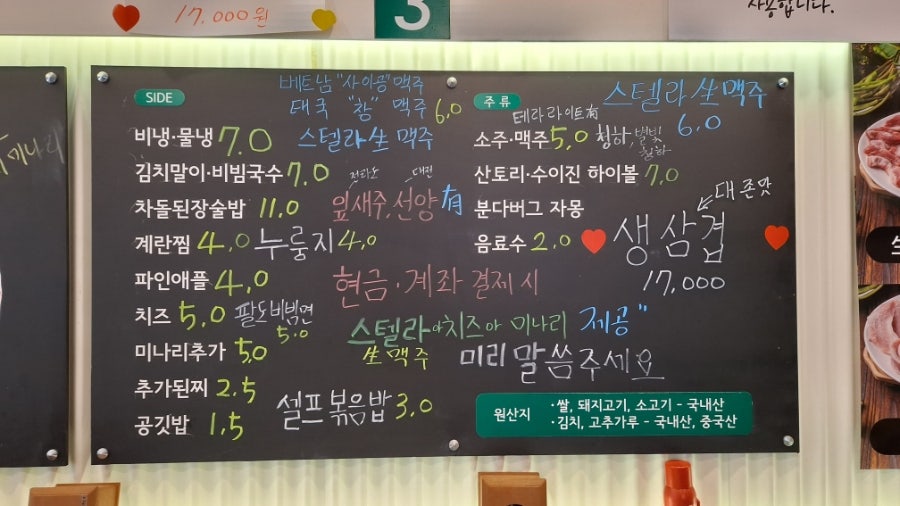 17.000원
3
사용합니다.
미나리
SIDE
베트남 "사이공" 맥주
태국 "창" 맥주 6.0
스텔라 生 맥주
비냉·물냉 7.0
김치말이·비빔국수 7.0
전라도 대전
잎새주, 선양 有
차돌된장술밥 11.0
계란찜 4.0 누룽지 4.0
파인애플 4.0
치즈 5.0 팔도비빔면 5.0
미나리추가 5.0
추가된찌 2.5
공깃밥 1.5
셀프볶음밥 3.0
현금·계좌 결제 시
스텔라 치즈 미나리 제공"
生맥주 미리 말씀주세요
주류
스텔라 生 맥주
6.0
테라 라이트有
소주·맥주 5.0 청하, 별빛청하
산토리·수이진 하이볼 7.0
분다버그 자몽
음료수 2.0
대존맛
생삼겹
17,000
원산지
·쌀, 돼지고기, 소고기 - 국내산
·김치, 고추가루 - 국내산, 중국산